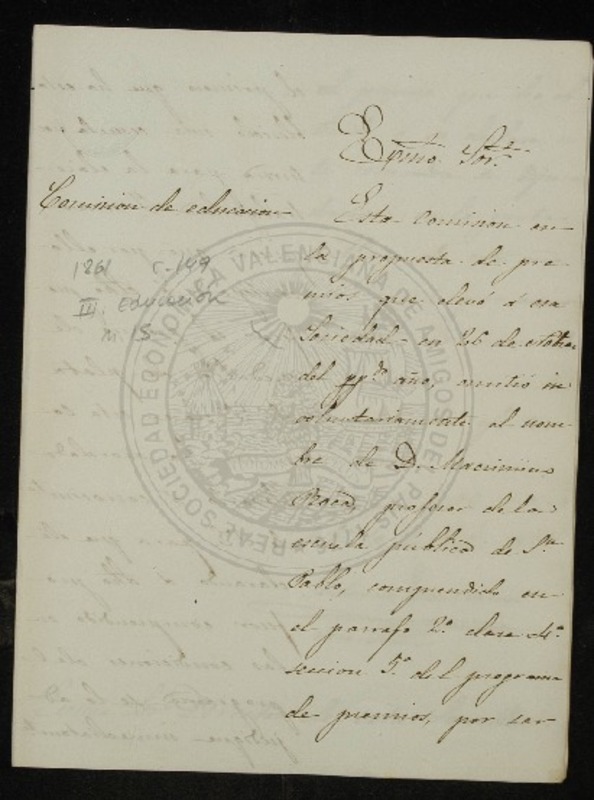 Exmo. Sor.
Comision de educacion
Esta Comision en
la propuesta de pre-
mios que elevó á esa
Sociedad en 26 de
del pp.do año, omitió in
voluntariamente el nom-
bre de D. Maximino
profesor de la
escuela pública de Sn.
Pablo, comprendido en
el parrafo 2.o clase 4.a
seccion 5.a del programa
de premios, por ser
1861 C-149
III. EDUCACIÓN
N. 5
REAL SOCIEDAD ECONÓMICA VALENCIANA DE AMIGOS DEL PAÍS